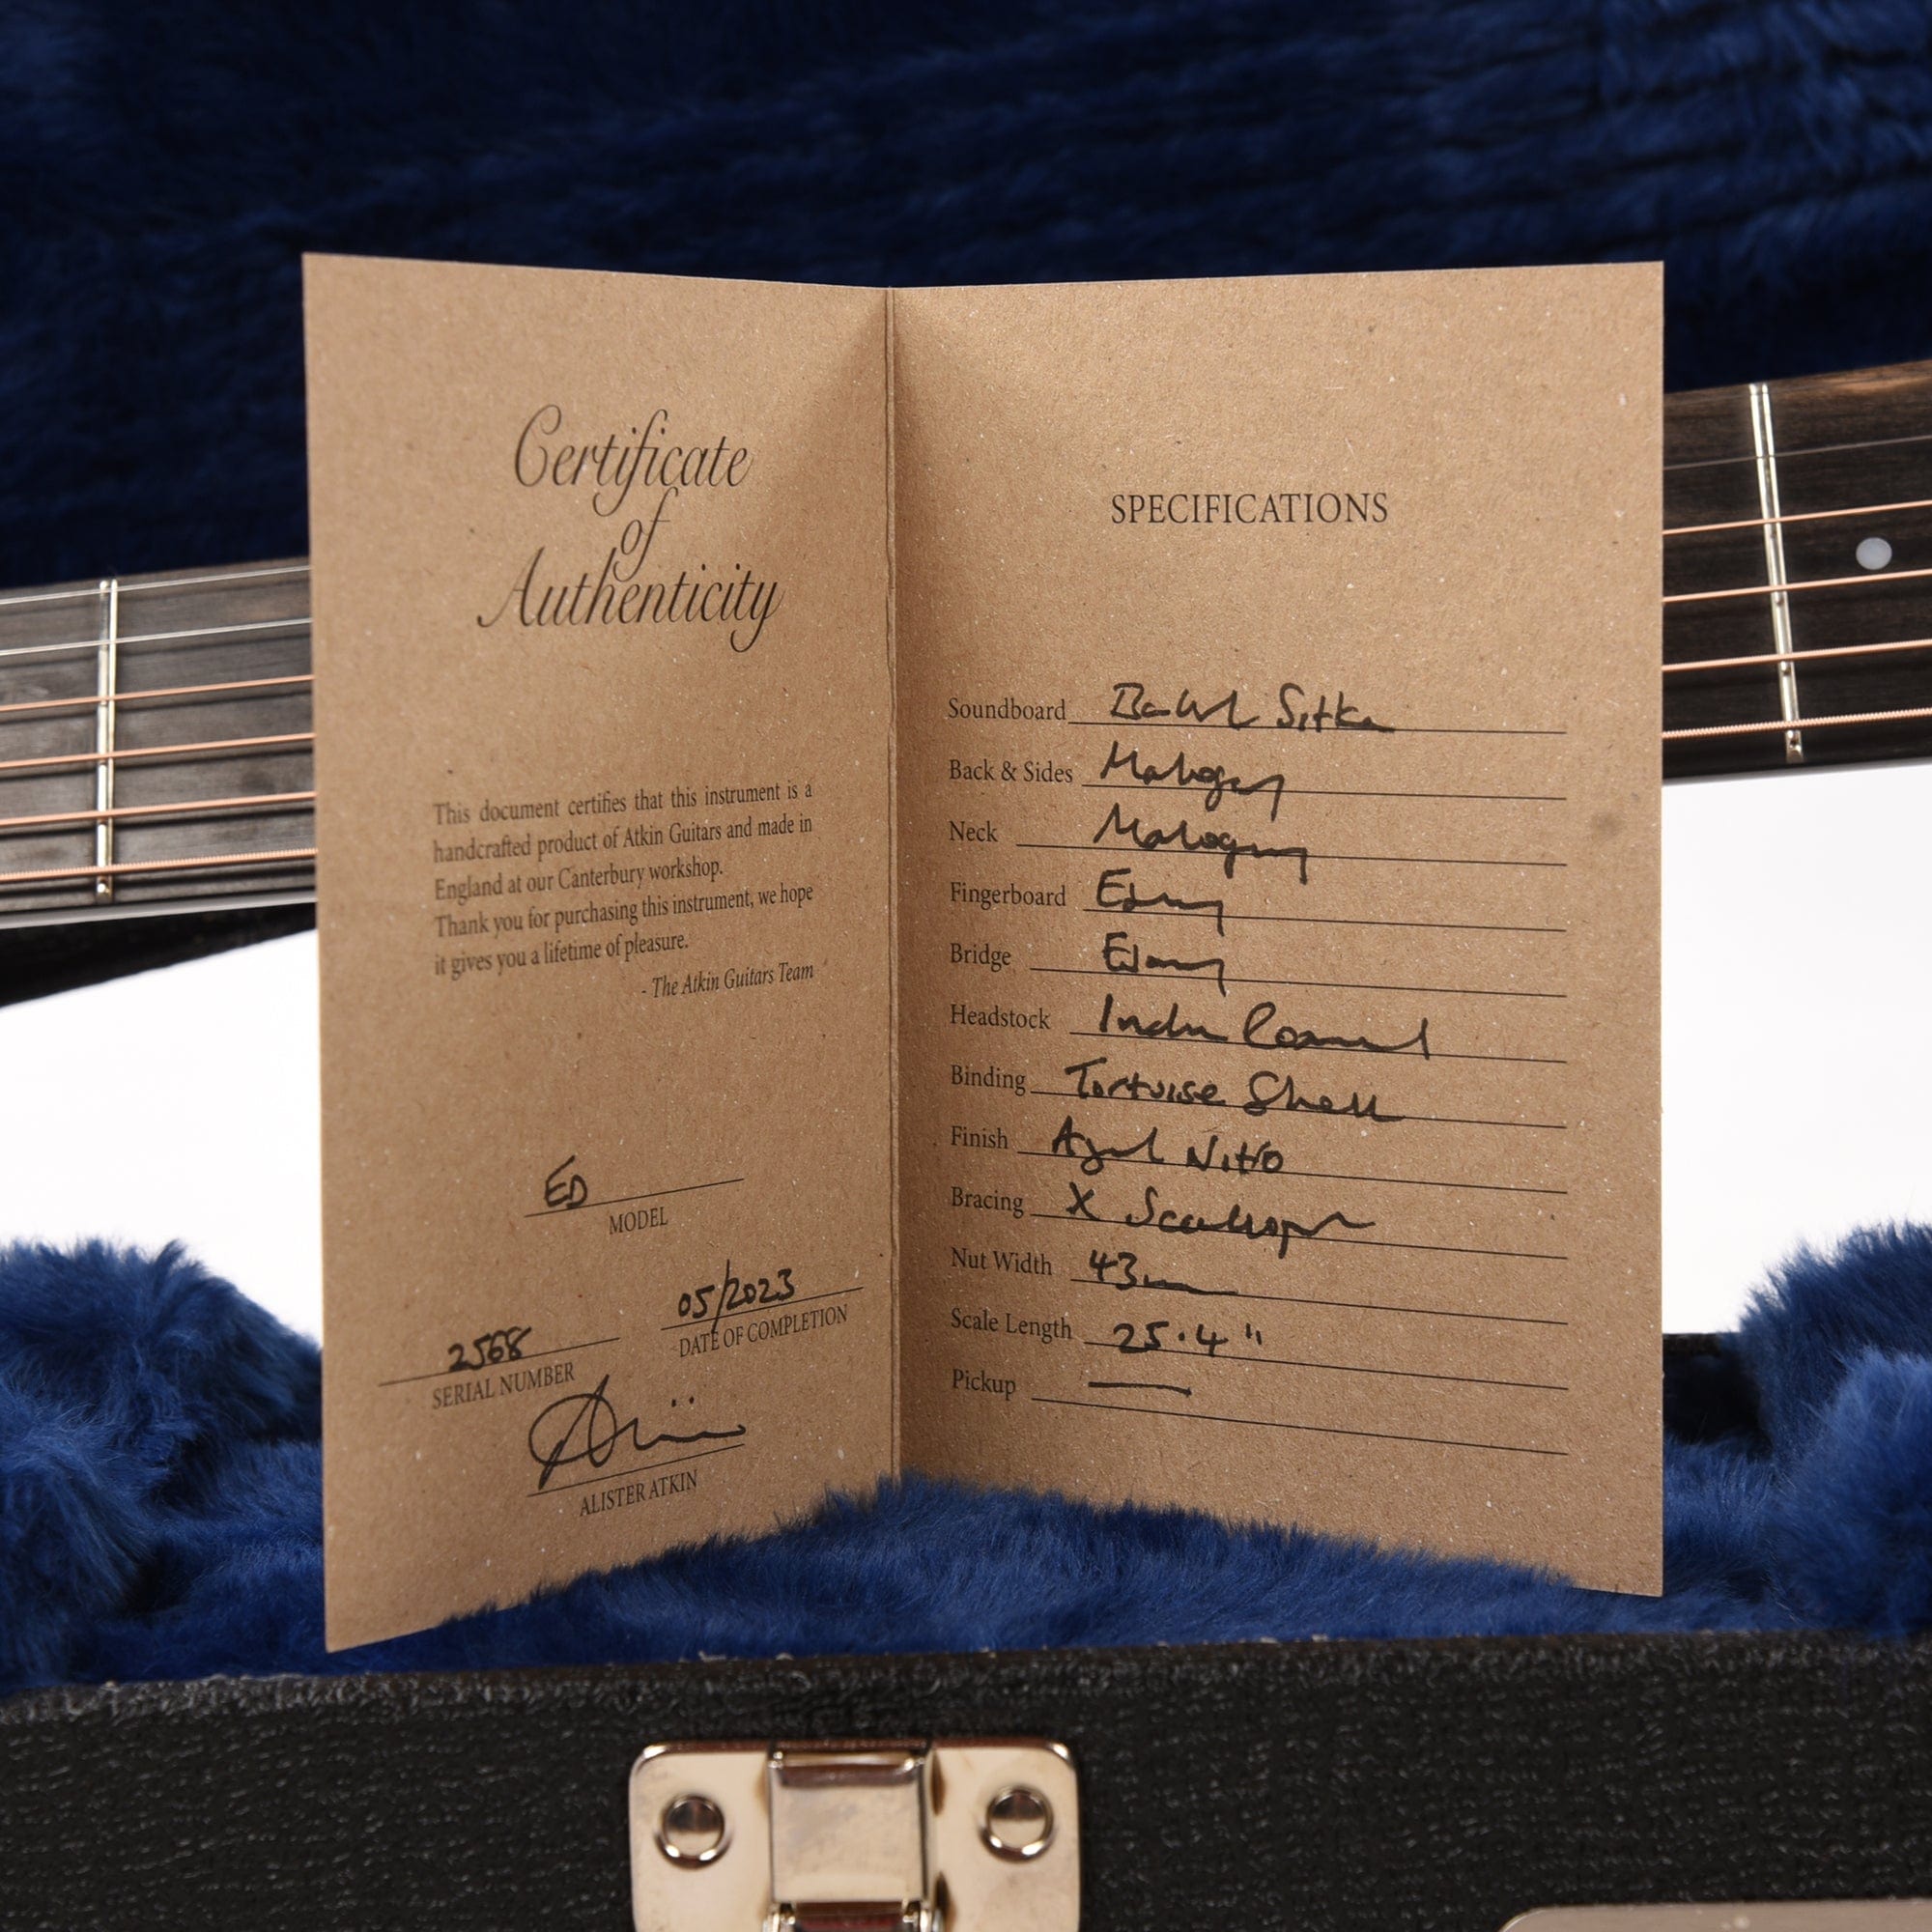 Certificate
of
Authenticity
This document certifies that this instrument is a
handcrafted product of Atkin Guitars and made in
England at our Canterbury workshop.
Thank you for purchasing this instrument, we hope
it gives you a lifetime of pleasure.
- The Atkin Guitars Team
ED
MODEL
2568
SERIAL NUMBER
05/2023
DATE OF COMPLETION
ALISTER ATKIN
SPECIFICATIONS
Soundboard Baked Sitka
Back & Sides Mahogany
Neck Mahogany
Fingerboard Ebony
Bridge Ebony
Headstock Indian Rosewood
Binding Tortoise Shell
Finish Aged Nitro
Bracing X Scalloped
Nut Width 43mm
Scale Length 25.4"
Pickup —